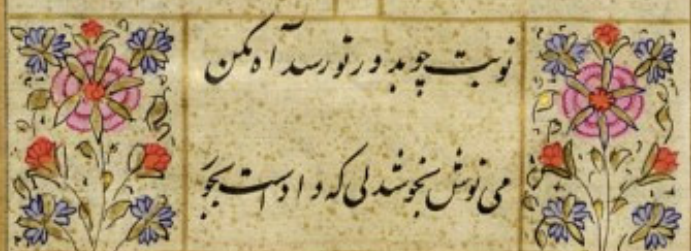 نوبت چو بدور تو رسد آه مکن
می نوش بخوشدلی که دور است بجور